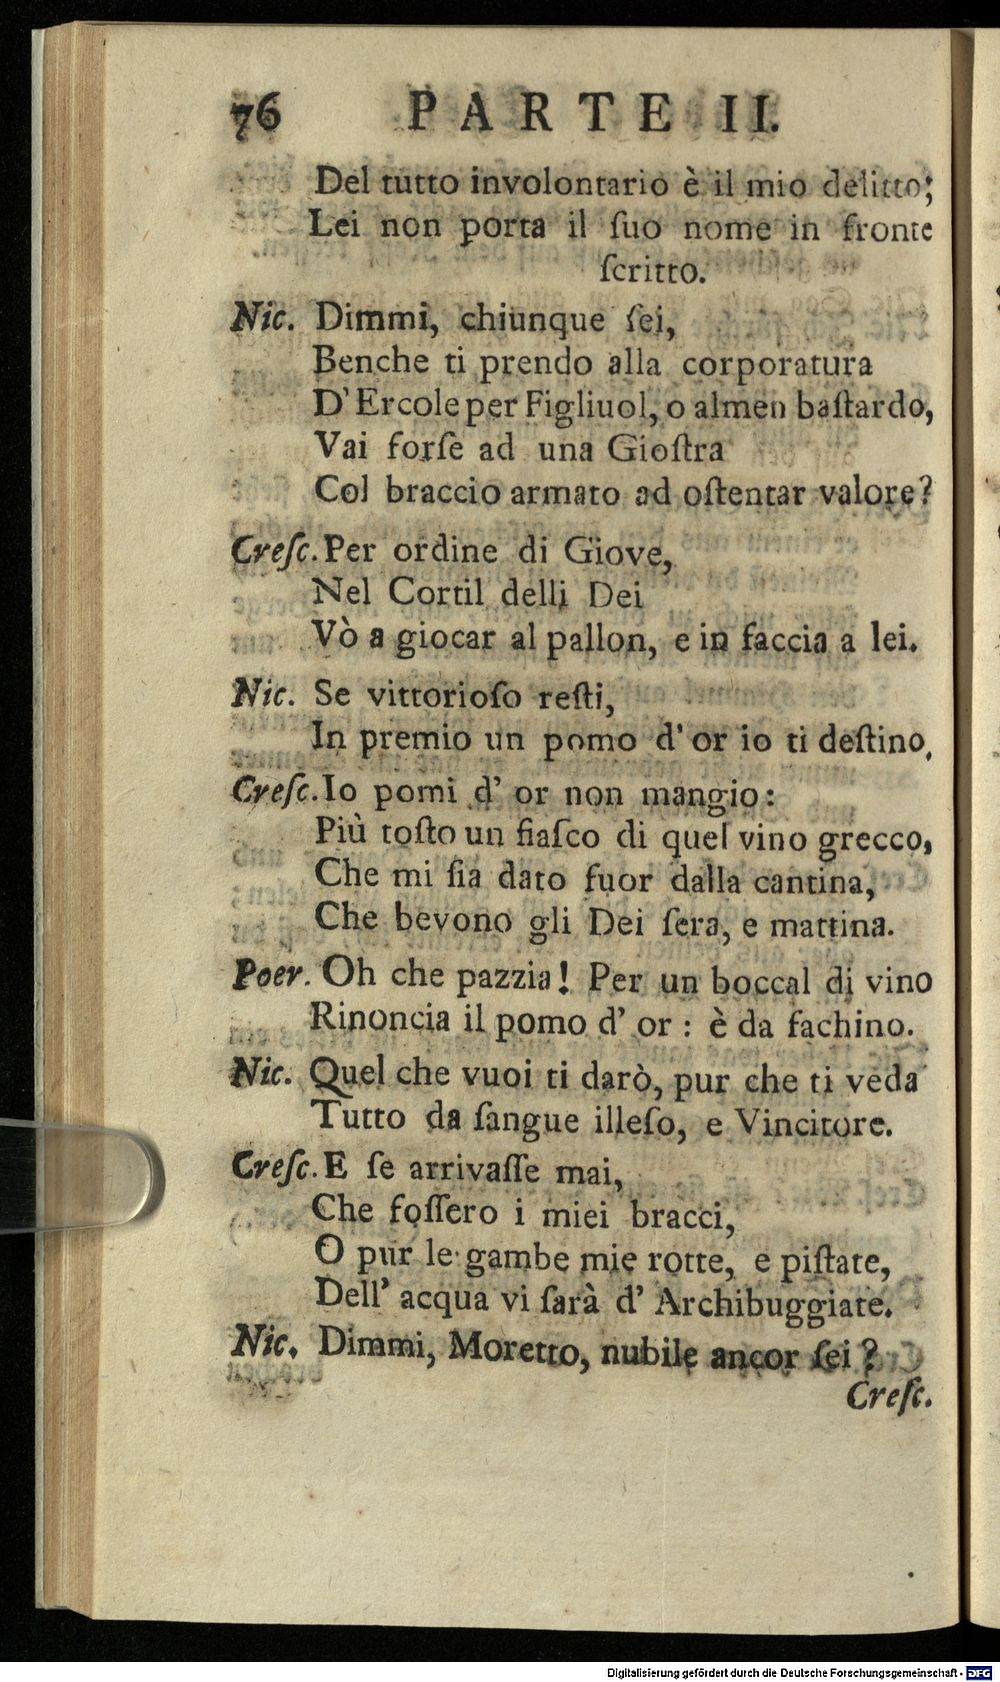 76 PARTE II.
Del tutto involontario è il mio delitto;
Lei non porta il ſuo nome in fronte
ſcritto.
Nic. Dimmi, chiunque ſei,
Benche ti prendo alla corporatura
D' Ercole per Figliuol, o almen baſtardo,
Vai forſe ad una Gioſtra
Col braccio armato ad oſtentar valore?
Creſc. Per ordine di Giove,
Nel Cortil delli Dei
Vò a giocar al pallon, e in faccia a lei.
Nic. Se vittorioſo reſti,
In premio un pomo d' or io ti deſtino.
Creſc. Io pomi d' or non mangio:
Più toſto un fiaſco di quel vino grecco,
Che mi ſia dato fuor dalla cantina,
Che bevono gli Dei ſera, e mattina.
Poer. Oh che pazzia! Per un boccal di vino
Rinoncia il pomo d' or : è da fachino.
Nic. Quel che vuoi ti darò, pur che ti veda
Tutto da ſangue illeſo, e Vincitore.
Creſc. E ſe arrivaſſe mai,
Che foſſero i miei bracci,
O pur le gambe mie rotte, e piſtate,
Dell' acqua vi ſarà d' Archibuggiate.
Nic. Dimmi, Moretto, nubile ancor ſei?
Creſc.
Digitalisierung gefördert durch die Deutsche Forschungsgemeinschaft - DFG